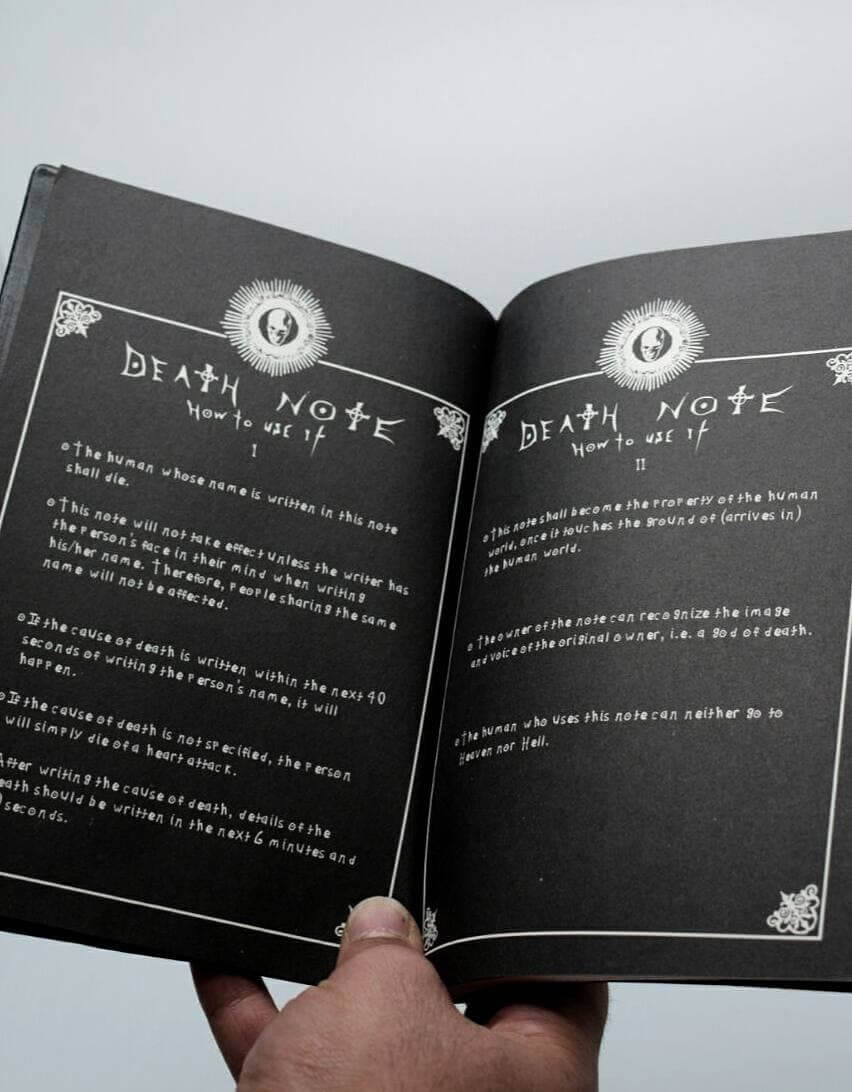 DEATH NOTE
How to use it
I
The human whose name is written in this note
shall die.
This note will not take effect unless the writer has
the person's face in their mind when writing
his/her name. Therefore, people sharing the same
name will not be affected.
If the cause of death is written within the next 40
seconds of writing the person's name, it will
happen.
If the cause of death is not specified, the person
will simply die of a heart attack.
After writing the cause of death, details of the
eath should be written in the next 6 minutes and
seconds.
DEATH NOTE
How to use it
II
This note shall become the property of the human
world, once it touches the ground of (arrives in)
the human world.
The owner of the note can recognize the image
and voice of the original owner, i.e. a god of death.
The human who uses this note can neither go to
Heaven nor Hell.